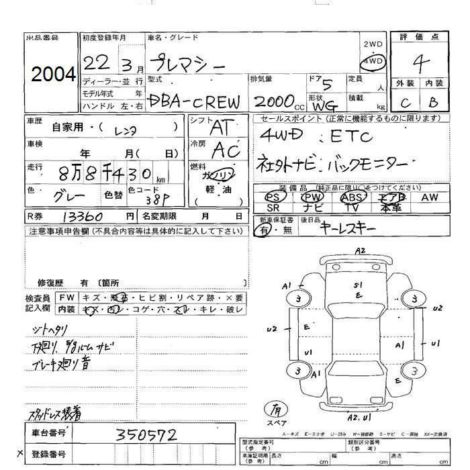 出品番号
2004
初度登録年月
22年 3月
車名・グレード
プレマシー
2WD
4WD
評価点
4
ディーラー・並行
モデル年式 年
ハンドル 左・右
型式
DBA-CREW
排気量
2000cc
ドア
5
形状
WG
定員
人
積載
kg
外装
C
内装
B
車歴
自家用・(レンタ)
シフト
AT
セールスポイント(正常に機能するものに限ります)
4WD . ETC
社外ナビ . バックモニター
車検
年 月(年 月)
冷房
AC
走行
8万8千430km
燃料
ガソリン
軽・油
( )
色
グレー
色替
色コード
38P
装備品(純正品に限り○をつけてください)
PS PW ABS エアB AW
SR ナビ TV 本革
R券
13360円
名変期限 月 日
新車保証書
有・無
後日品
キーレスキー
注意事項申告欄(不具合内容等は具体的に記入して下さい)
修復歴 有(箇所 )
検査員記入欄
FW キズ・飛石・ヒビ割・リペア跡・×要
内装 キズ・凹・コゲ・穴・スレ・キレ・破レ
シートヘタリ
下廻り サビ
ブレーキ廻り音
スタッドレス装着
車台番号
350572
A2
A1
S1
3
3
U2
E
U2
A1
U1
U1
E
3
3
A2.U1
有
スペア
型式指定番号
類別区分番号
車庫証明用
長さ cm
幅 cm
高さ cm